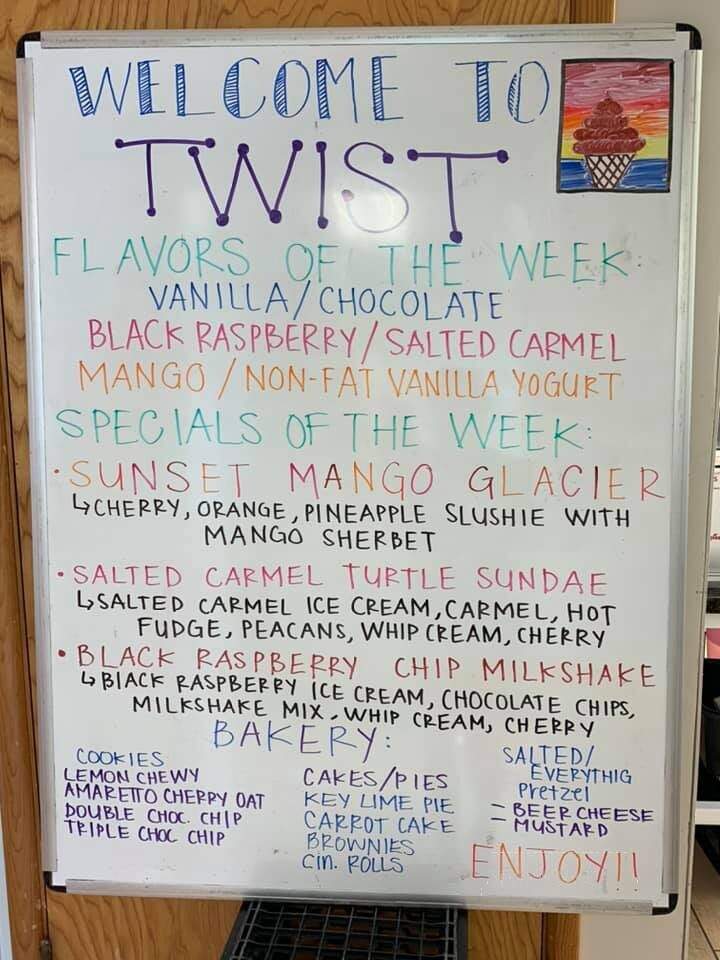 WELCOME TO
TWIST
FLAVORS OF THE WEEK:
VANILLA/CHOCOLATE
BLACK RASPBERRY/SALTED CARMEL
MANGO/NON-FAT VANILLA YOGURT
SPECIALS OF THE WEEK:
·SUNSET MANGO GLACIER
↳CHERRY, ORANGE, PINEAPPLE SLUSHIE WITH
MANGO SHERBET
·SALTED CARMEL TURTLE SUNDAE
↳SALTED CARMEL ICE CREAM, CARMEL, HOT
FUDGE, PEACANS, WHIP CREAM, CHERRY
·BLACK RASPBERRY CHIP MILKSHAKE
↳BLACK RASPBERRY ICE CREAM, CHOCOLATE CHIPS,
MILKSHAKE MIX, WHIP CREAM, CHERRY
BAKERY:
COOKIES
LEMON CHEWY
AMARETTO CHERRY OAT
DOUBLE CHOC. CHIP
TRIPLE CHOC CHIP
CAKES/PIES
KEY LIME PIE
CARROT CAKE
BROWNIES
Cin. ROLLS
SALTED/
EVERYTHIG
Pretzel
- BEER CHEESE
- MUSTARD
ENJOY!!